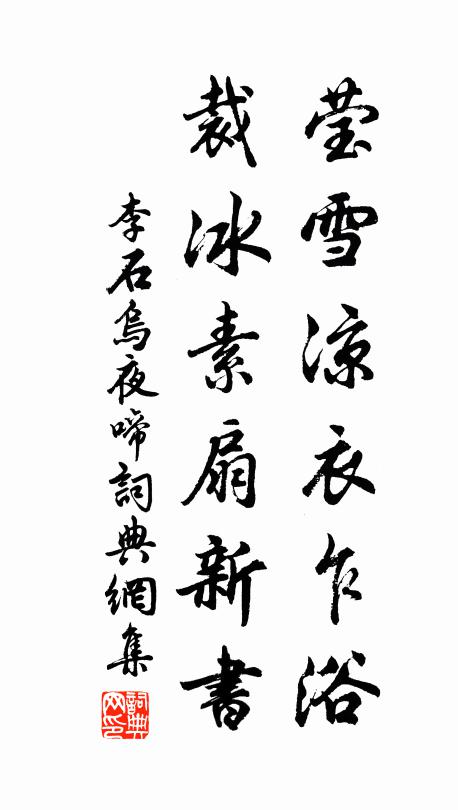 莹雪凉衣乍浴
裁冰素扇新書
李石烏夜啼詞典網集
詞典网印